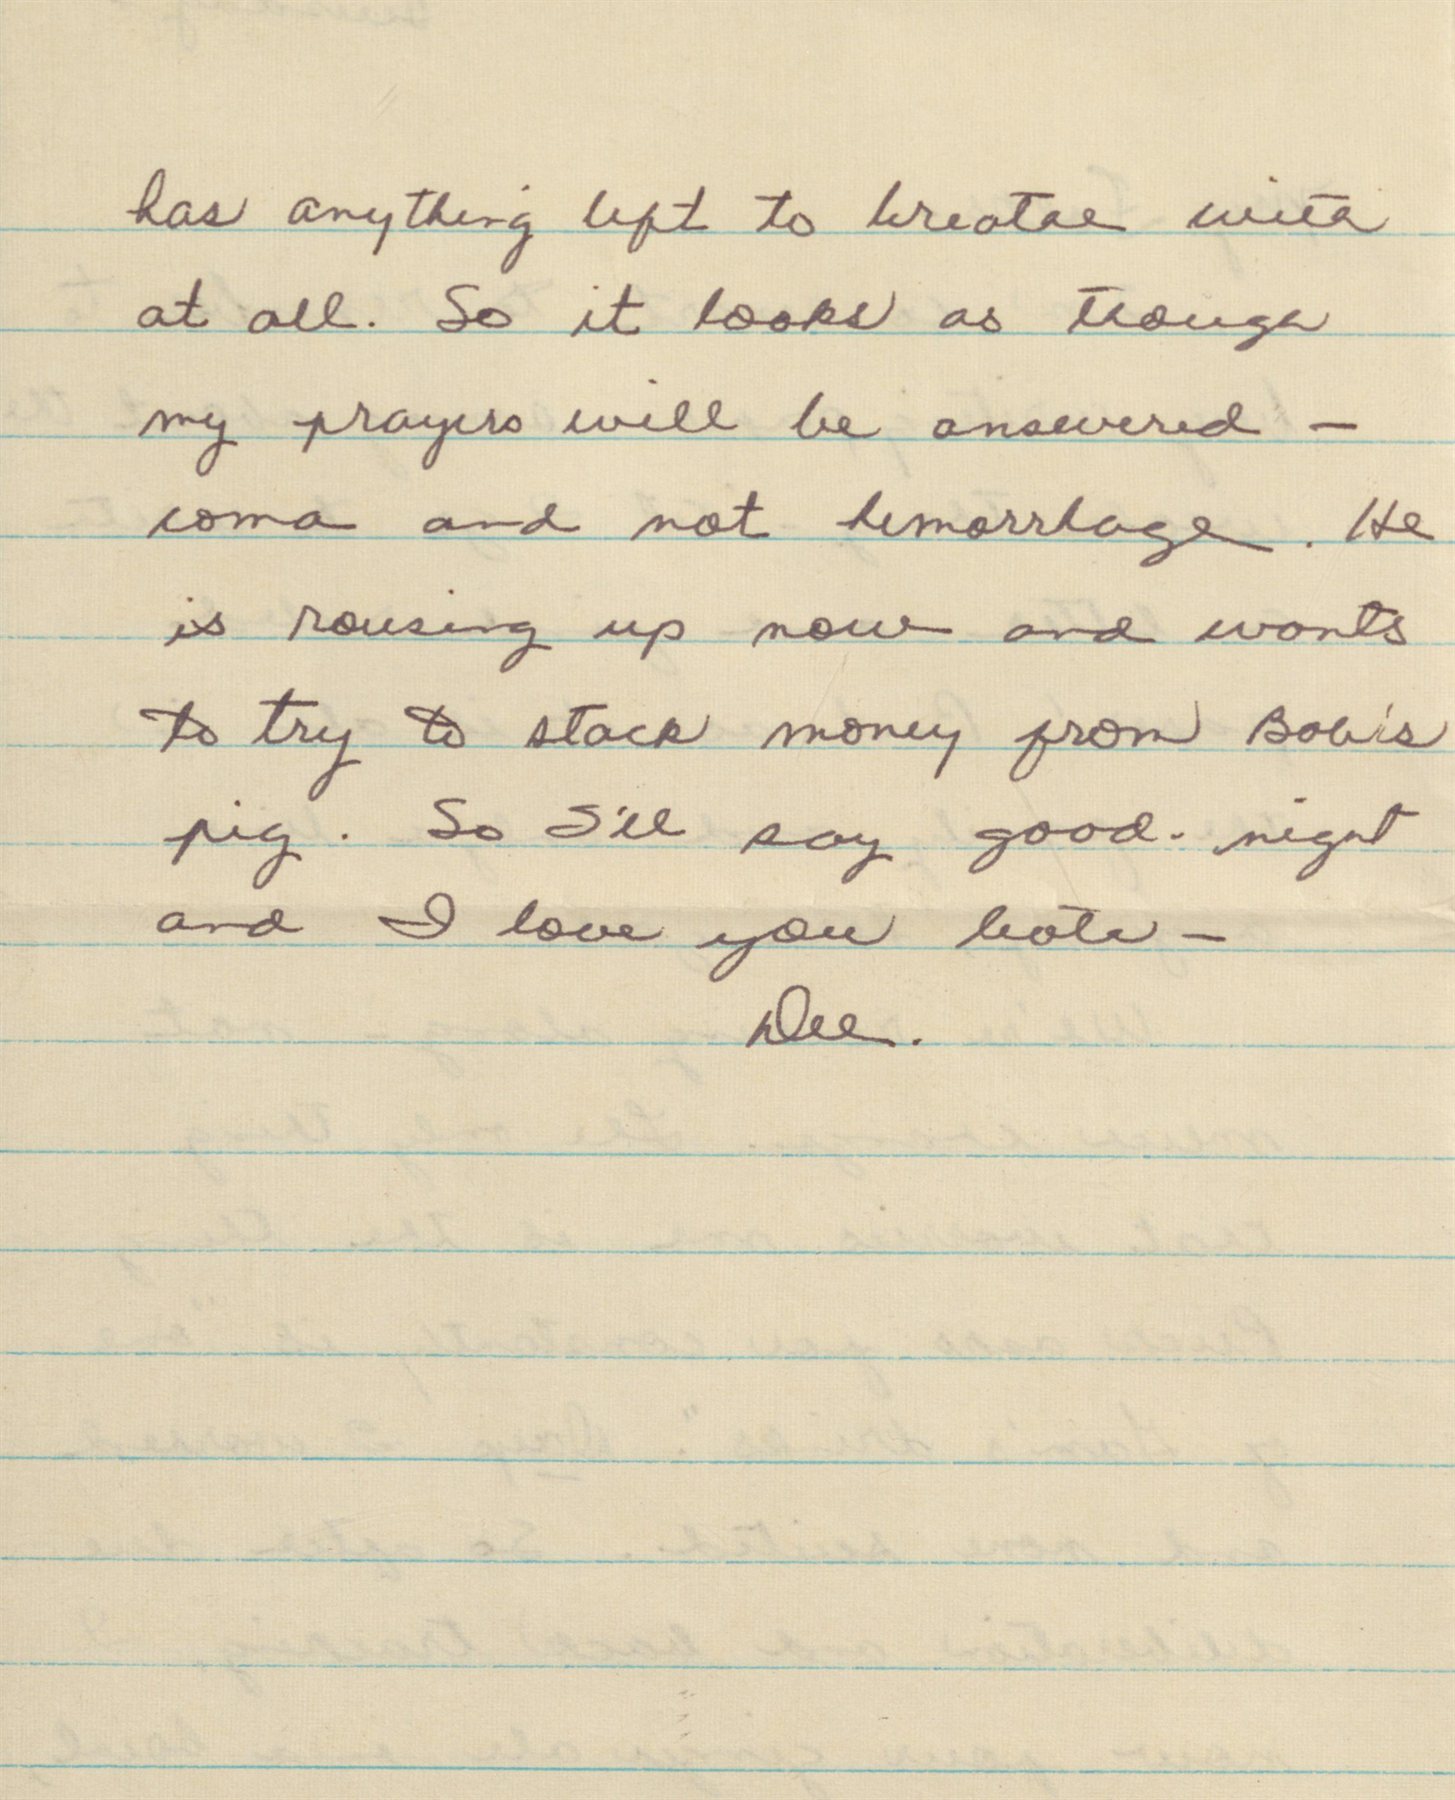 has anything left to breathe with
at all. So it looks as though
my prayers will be answered –
coma and not hemorrhage. He
is rousing up now and wants
to try to stack money from Bob's
pig. So I'll say good-night
and I love you both –
Dee.